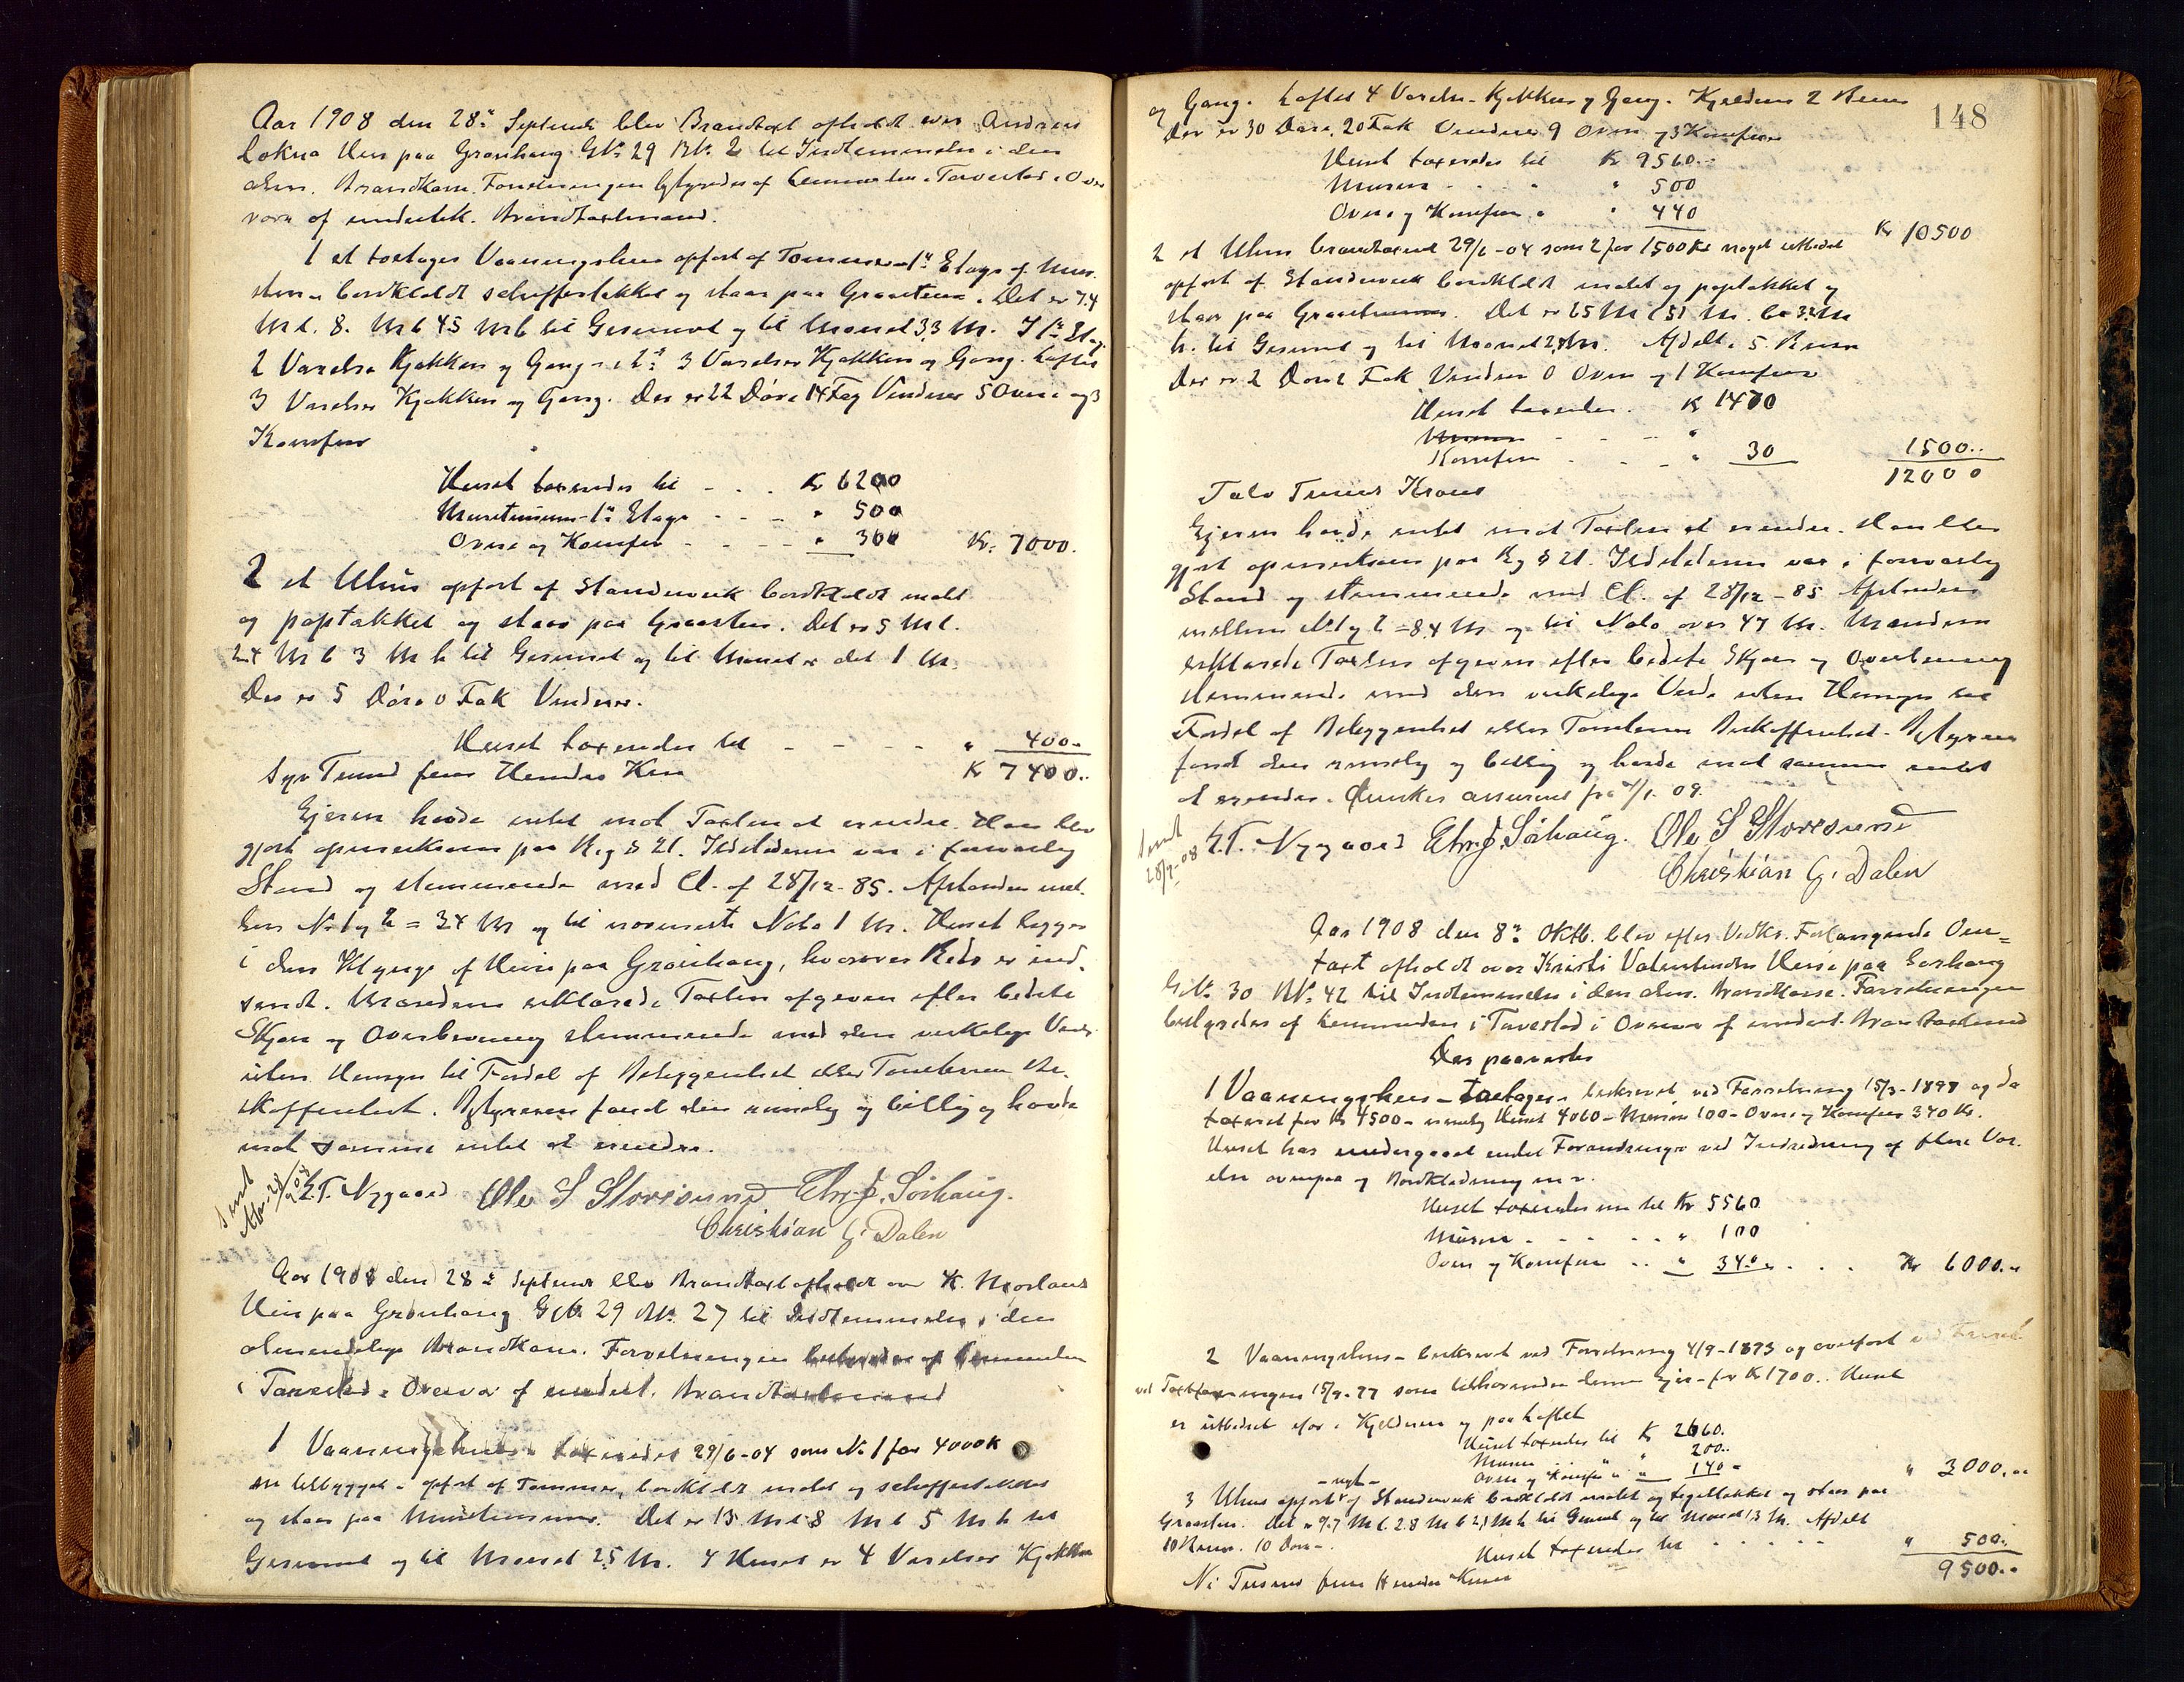 Aar 1908 den 28de Septembr blev Brandtaxt afholdt over Andreas
Lokna Hus paa Grønhaug G.Nr. 29 B.Nr. 2 til Indlemmelse i den
alm. Brandkasse. Forretningen bestyredes af Lensmanden i Torvestad & Ava-
voru of undertek. Brandtaxtmænd.
1 et toetages Vaaningshus opført af Tømmer - 1ste Etage af Mur-
sten - bordklædt schiffertækket og staar paa Graasten. Det er 7.4
M l. 8. M b 4.5 M h til Gesimset og til Mønet 3.3 M. I 1ste Etag
2 Værelser Kjøkken og Gang - i 2den 3 Værelser Kjøkken og Gang. Loftet
3 Værelser Kjøkken og Gang. Der er 22 Døre 14 Fag Vinduer 5 Ovne og 3
Komfur
Huset taxeredes til - . . Kr 6200
Murstenene - 1ste Etage - - - " 500
Ovne og Komfur - - - - " 300 Kr. 7000.
2 et Uhus opført af Standerværk bordklædt malt
og paptækket og staar paa Graasten. Det er 5 M l.
2.4 M b 3 M h til Gesimset og til Mønet er det 1 M.
Der er 5 Døre 0 Fak Vinduer.
Huset taxeredes til - - - - " 400-
Syv Tusind fire Hundre Kro K 7400..
Ejeren havde intet mod Taxten at erindre. Han blev
gjort opmerksom paa Reg § 21. Ildstederne var i forsvarlig
Stand og stemmende med Cl. af 28/12-85. Afstanden mel-
lem No 1 og 2 = 34 M og til nærmeste Nabo 1 M. Huset ligger
i den Klynge af Huse paa Grønhaug, hvorover Rids er ind-
sendt. Mændene erklærede Taxten afgiven efter bedste
Skjøn og Overbevisning stemmende med den virkelige Værdi
uden Hensyn til Fordel af Beliggenhed eller Tomternes Be-
skaffenhed. Bestyreren fandt den rimelig og billig og havde
mod samme intet at erindre.
L.T. Nygaard Ole S Storesund Chr. J. Sørhaug.
Christian G. Dalen
Aar 1908 den 28de Septembr blev Brandtaxt afholdt over K. Morlands
Hus paa Grønhaug G.Nr. 29 B.Nr. 27 til Indlemmelse i den
almindelige Brandkasse. Forretningen bestyredes af Lensmanden
i Torvestad & Avavor of undert. Brandtaxtmænd
1 Vaaningshus - taxeredes 29/6-04 som No 1 for 4000 K
er tilbygget - opført af Tømmer, bordklædt malet og schiffertækket
og staar paa Murstensmur. Det er 13 M l 8 M b 5 M h til
Gesimset og til Mønet 2.5 M. I Huset er 4 Værelser Kjøkken
148
og Gang. Loftet 4 Værelser Kjøkken og Gang. Kjælderen 2 Rum
Der er 30 Døre, 20 Fak Vinduer 9 Ovne og 3 Komfur
Huset taxeredes til Kr 9560..
Murene . . . " 500
Ovne og Komfur " " 440
Kr 10500
2 et Uhus brandtaxeret 29/6-04 som 2 for 1500 Kr noget utbedret
opført af Standerværk bordklædt malet og paptækket og
staar paa Graastensmur. Det er 6.5 M l 5.1 M b 3.2 M
h. til Gesimset og til Mønet 2,8 M. Afdelt i 5 Rum
Der er 2 Døre 2 Fak Vinduer 0 Ovne og 1 Komfur
Huset taxeredes . K 1470
Komfur - - " 30 1500..
12000
Tolv Tusind Kroner
Ejeren havde intet mod Taxten at erindre. Han blev
gjort opmerksom paa Reg § 21. Ildstederne var i forsvarlig
Stand og stemmende med Cl. af 28/12-85 Afstanden
mellem No 1 og 2 = 8.4 M og til Nabo over 47 M. Mændene
erklærede Taxten afgiven efter bedste Skjøn og Overbevisning
stemmende med den virkelige Værdi uden Hensyn til
Fordel af Beliggenhed eller Tomternes Beskaffenhed. Bestyreren
fandt den rimelig og billig og havde mod samme intet
at erindre. Ønskes assureret fra 1/1. 09.
L.T. Nygaard Chr. J. Sørhaug. Ole S Storesund
Christian G. Dalen
Aar 1908 den 8de Oktb. blev efter Vedks. Forlangende Om-
taxt afholdt over Kristi Huse paa
G.Nr. 30 B.Nr. 42 til Indlemmelse i den alm. Brandkasse. Forretningen
bestyredes af Lensmanden i Torvestad i Overvær af undert. Brandtaxtmænd
Der paavistes
1 Vaaningshus - toetages - beskrevet ved Forretning 15/9-1897 og da
taxeret for Kr 4500 - nemlig Huset 4060 - Murene 100 - Ovne og Komfur 340 Kr.
Huset har undergaaet endel Forandringer ved Indredning af flere Væ-
relser ovenpaa og Bordklædning m.v.
Huset taxeredes nu til Kr 5560
Murene - - - - - " 100
Ovne og Komfur .. " 340 . . . Kr 6000..
2 Vaaningshus - beskrevet ved Forretning 4/9-1893 og overført
ved Taxtforretningen 15/9-97 som tilhørende denne Ejer - for K 1700.. Huset
er utbedret efter i Kjælderen og paa Loftet
Huset taxeredes til K 2660.
Murene .. " " 200..
Ovne og Komfur " " 140 - " 3000...
- nyt -
3 Uhus opført af Standerværk bordklædt malet og tegeltækket og staar paa
Graasten. Det er 9.7 M l. 2.8 M b 2,1 M h til Gesimset og til Mønet 1.3 M. Afdelt
10 Rum. 10 Døre -.
Huset taxeredes til . . . . . " 500..
Ni Tusind fem Hundre Kroner 9500..